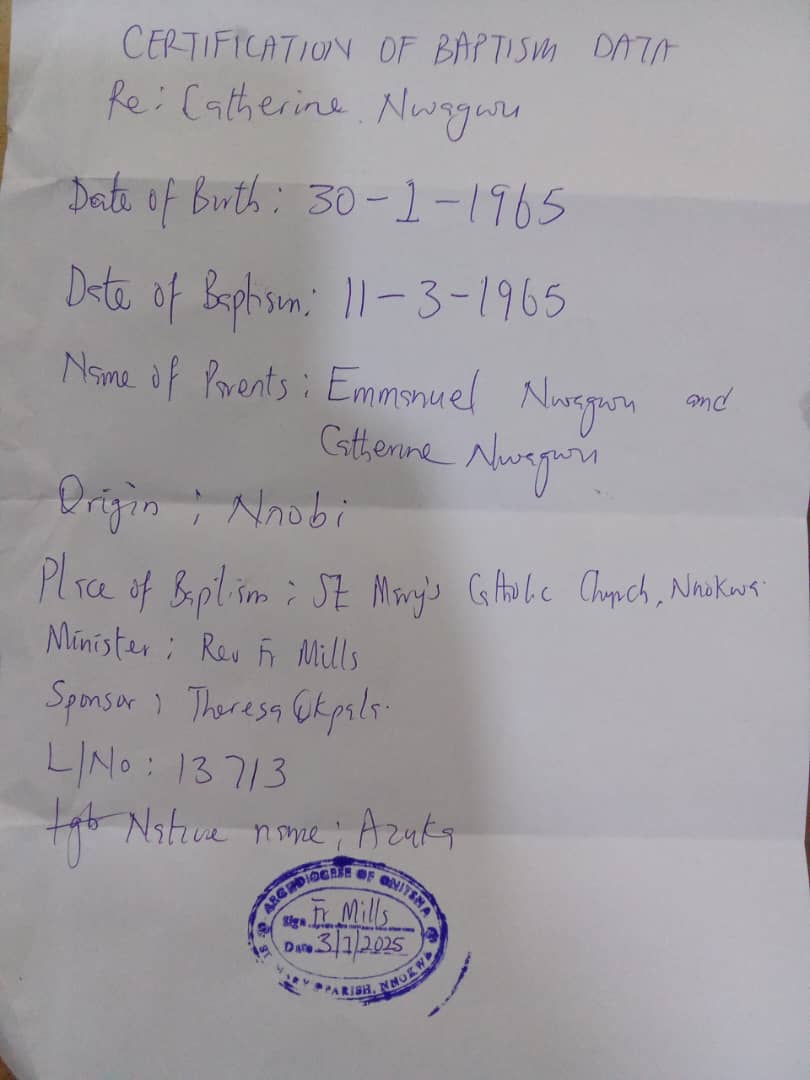 CERTIFICATION OF BAPTISM DATA
Re: Catherine Nwagwu
Date of Birth: 30-1-1965
Date of Baptism: 11-3-1965
Name of Parents: Emmanuel Nwagwu and
Catherine Nwagwu
Origin: Nnobi
Place of Baptism: St Mary's Catholic Church, Nnokwa.
Minister: Rev Fr Mills
Sponsor: Theresa Okpala.
L/No: 13713
Igb Native name: Azuka
ARCHDIOCESE OF ONITSHA
Sign. Fr Mills
Date 3/1/2025
ST. MARY PARISH, NNOKWA